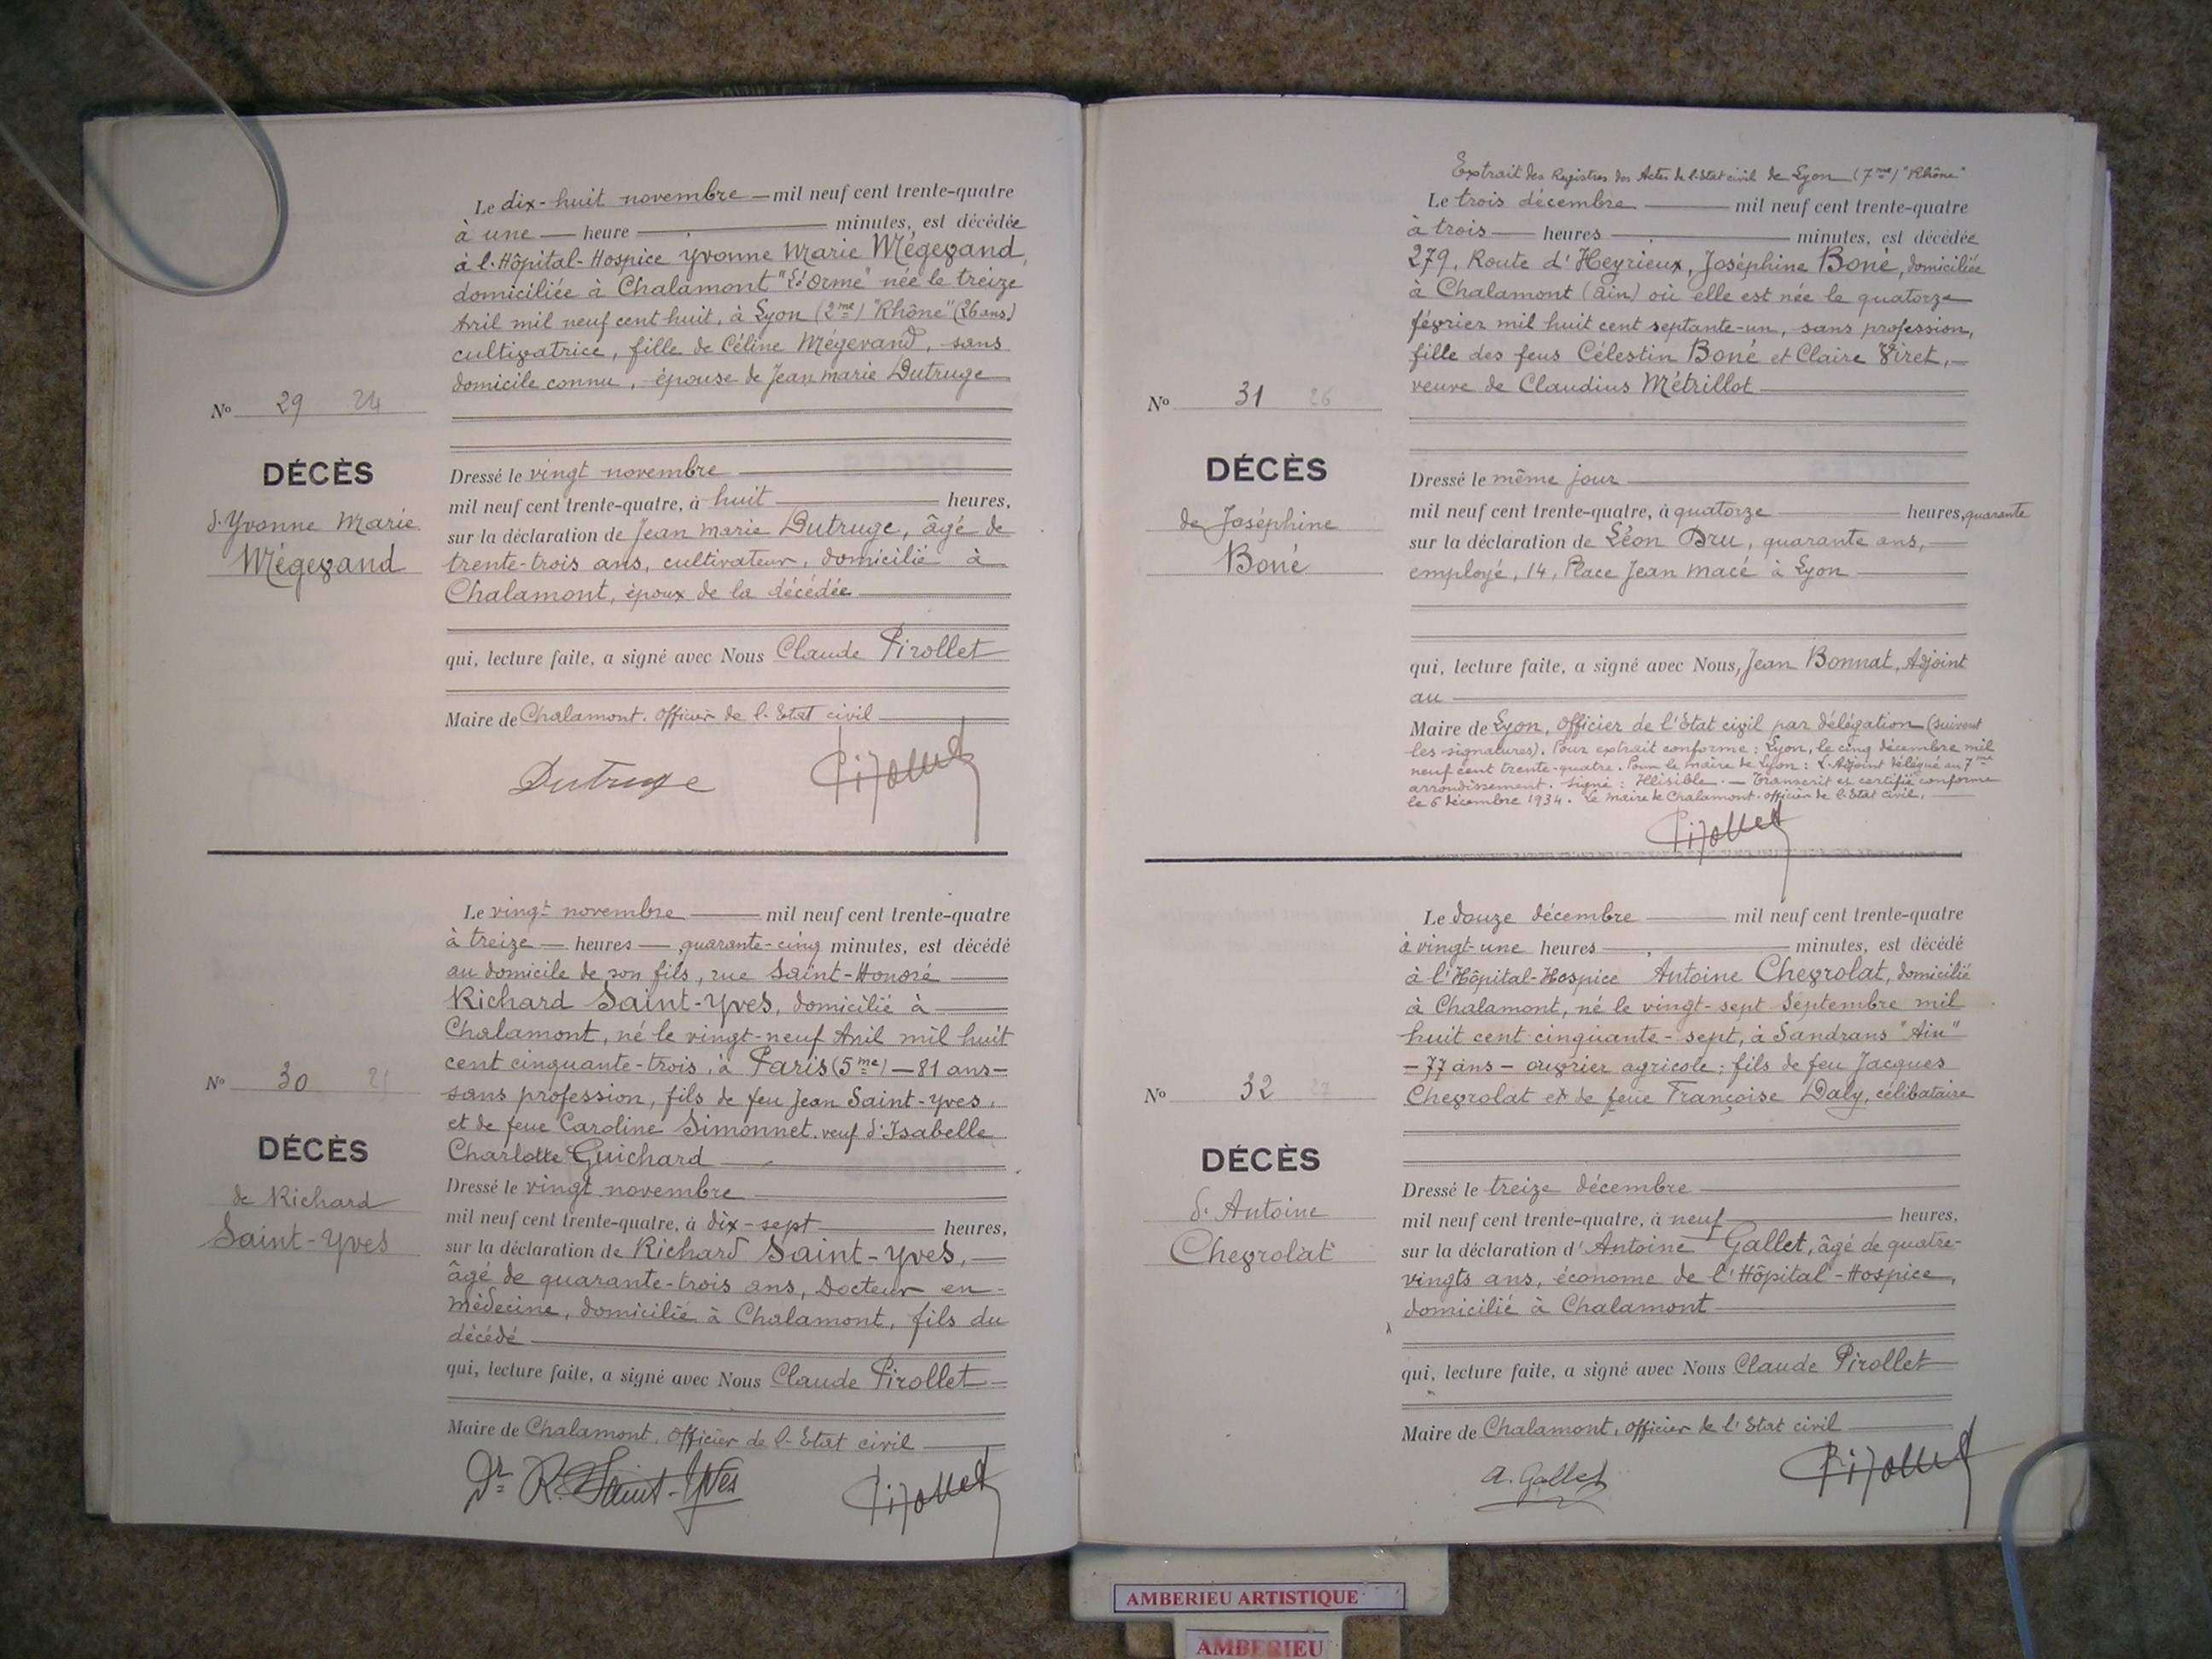 Le dix-huit novembre — mil neuf cent trente-quatre
à une — heure — minutes, est décédée
à l'Hôpital-Hospice Yvonne Marie Mégevand,
domiciliée à Chalamont "L'Orme" née le treize
Avril mil neuf cent huit, à Lyon (2me) "Rhône" (26 ans)
cultivatrice, fille de Céline Mégevand, sans
domicile connu, épouse de Jean Marie Dutruge
No 29 24
DÉCÈS
d'Yvonne Marie
Mégevand
Dressé le vingt novembre
mil neuf cent trente-quatre, à huit heures,
sur la déclaration de Jean Marie Dutruge, âgé de
trente-trois ans, cultivateur, domicilié à
Chalamont, époux de la décédée
qui, lecture faite, a signé avec Nous Claude Pirollet
Maire de Chalamont, officier de l'Etat civil
Dutruge Pirollet
Le vingt novembre — mil neuf cent trente-quatre
à treize — heures — quarante-cinq minutes, est décédé
au domicile de son fils, rue Saint-Honoré
Richard Saint-Yves, domicilié à
Chalamont, né le vingt-neuf Avril mil huit
cent cinquante-trois, à Paris (5me) — 81 ans —
sans profession, fils de feu Jean Saint-Yves,
et de feue Caroline Simonnet, veuf d'Isabelle
Charlotte Guichard
No 30
DÉCÈS
de Richard
Saint-Yves
Dressé le vingt novembre
mil neuf cent trente-quatre, à dix-sept heures,
sur la déclaration de Richard Saint-Yves,
âgé de quarante-trois ans, Docteur en-
médecine, domicilié à Chalamont, fils du
décédé
qui, lecture faite, a signé avec Nous Claude Pirollet
Maire de Chalamont, officier de l'Etat civil
Dr R. Saint-Yves Pirollet
Extrait des Registres des Actes de l'Etat civil de Lyon (7me) "Rhône"
Le trois décembre — mil neuf cent trente-quatre
à trois — heures — minutes, est décédée
279, Route d'Heyrieux, Joséphine Boné, domiciliée
à Chalamont (Ain) où elle est née le quatorze
février mil huit cent septante-un, sans profession,
fille des feus Célestin Boné et Claire Viret,
veuve de Claudius Métrillot
No 31 26
DÉCÈS
de Joséphine
Boné
Dressé le même jour
mil neuf cent trente-quatre, à quatorze heures, quarante
sur la déclaration de Léon Dru, quarante ans,
employé, 14, Place Jean Macé à Lyon
qui, lecture faite, a signé avec Nous, Jean Bonnat, Adjoint
au
Maire de Lyon, Officier de l'Etat civil par délégation (suivent
les signatures). Pour extrait conforme : Lyon, le cinq décembre mil
neuf cent trente-quatre. Pour le maire de Lyon : L'Adjoint délégué au 7me
arrondissement. Signé : Illisible. — Transcrit et certifié conforme
le 6 décembre 1934. Le maire de Chalamont, officier de l'Etat civil.
Pirollet
Le douze décembre — mil neuf cent trente-quatre
à vingt-une heures — minutes, est décédé
à l'Hôpital-Hospice Antoine Chevrolat, domicilié
à Chalamont, né le vingt-sept Septembre mil
huit cent cinquante-sept, à Sandrans "Ain"
— 77 ans — ouvrier agricole ; fils de feu Jacques
Chevrolat et de feue Françoise Daly, célibataire
No 32 27
DÉCÈS
d'Antoine
Chevrolat
Dressé le treize décembre
mil neuf cent trente-quatre, à neuf heures,
sur la déclaration d'Antoine Gallet, âgé de quatre-
vingts ans, économe de l'Hôpital-Hospice,
domicilié à Chalamont
qui, lecture faite, a signé avec Nous Claude Pirollet
Maire de Chalamont, officier de l'Etat civil
A. Gallet Pirollet
AMBERIEU ARTISTIQUE
AMBERIEU